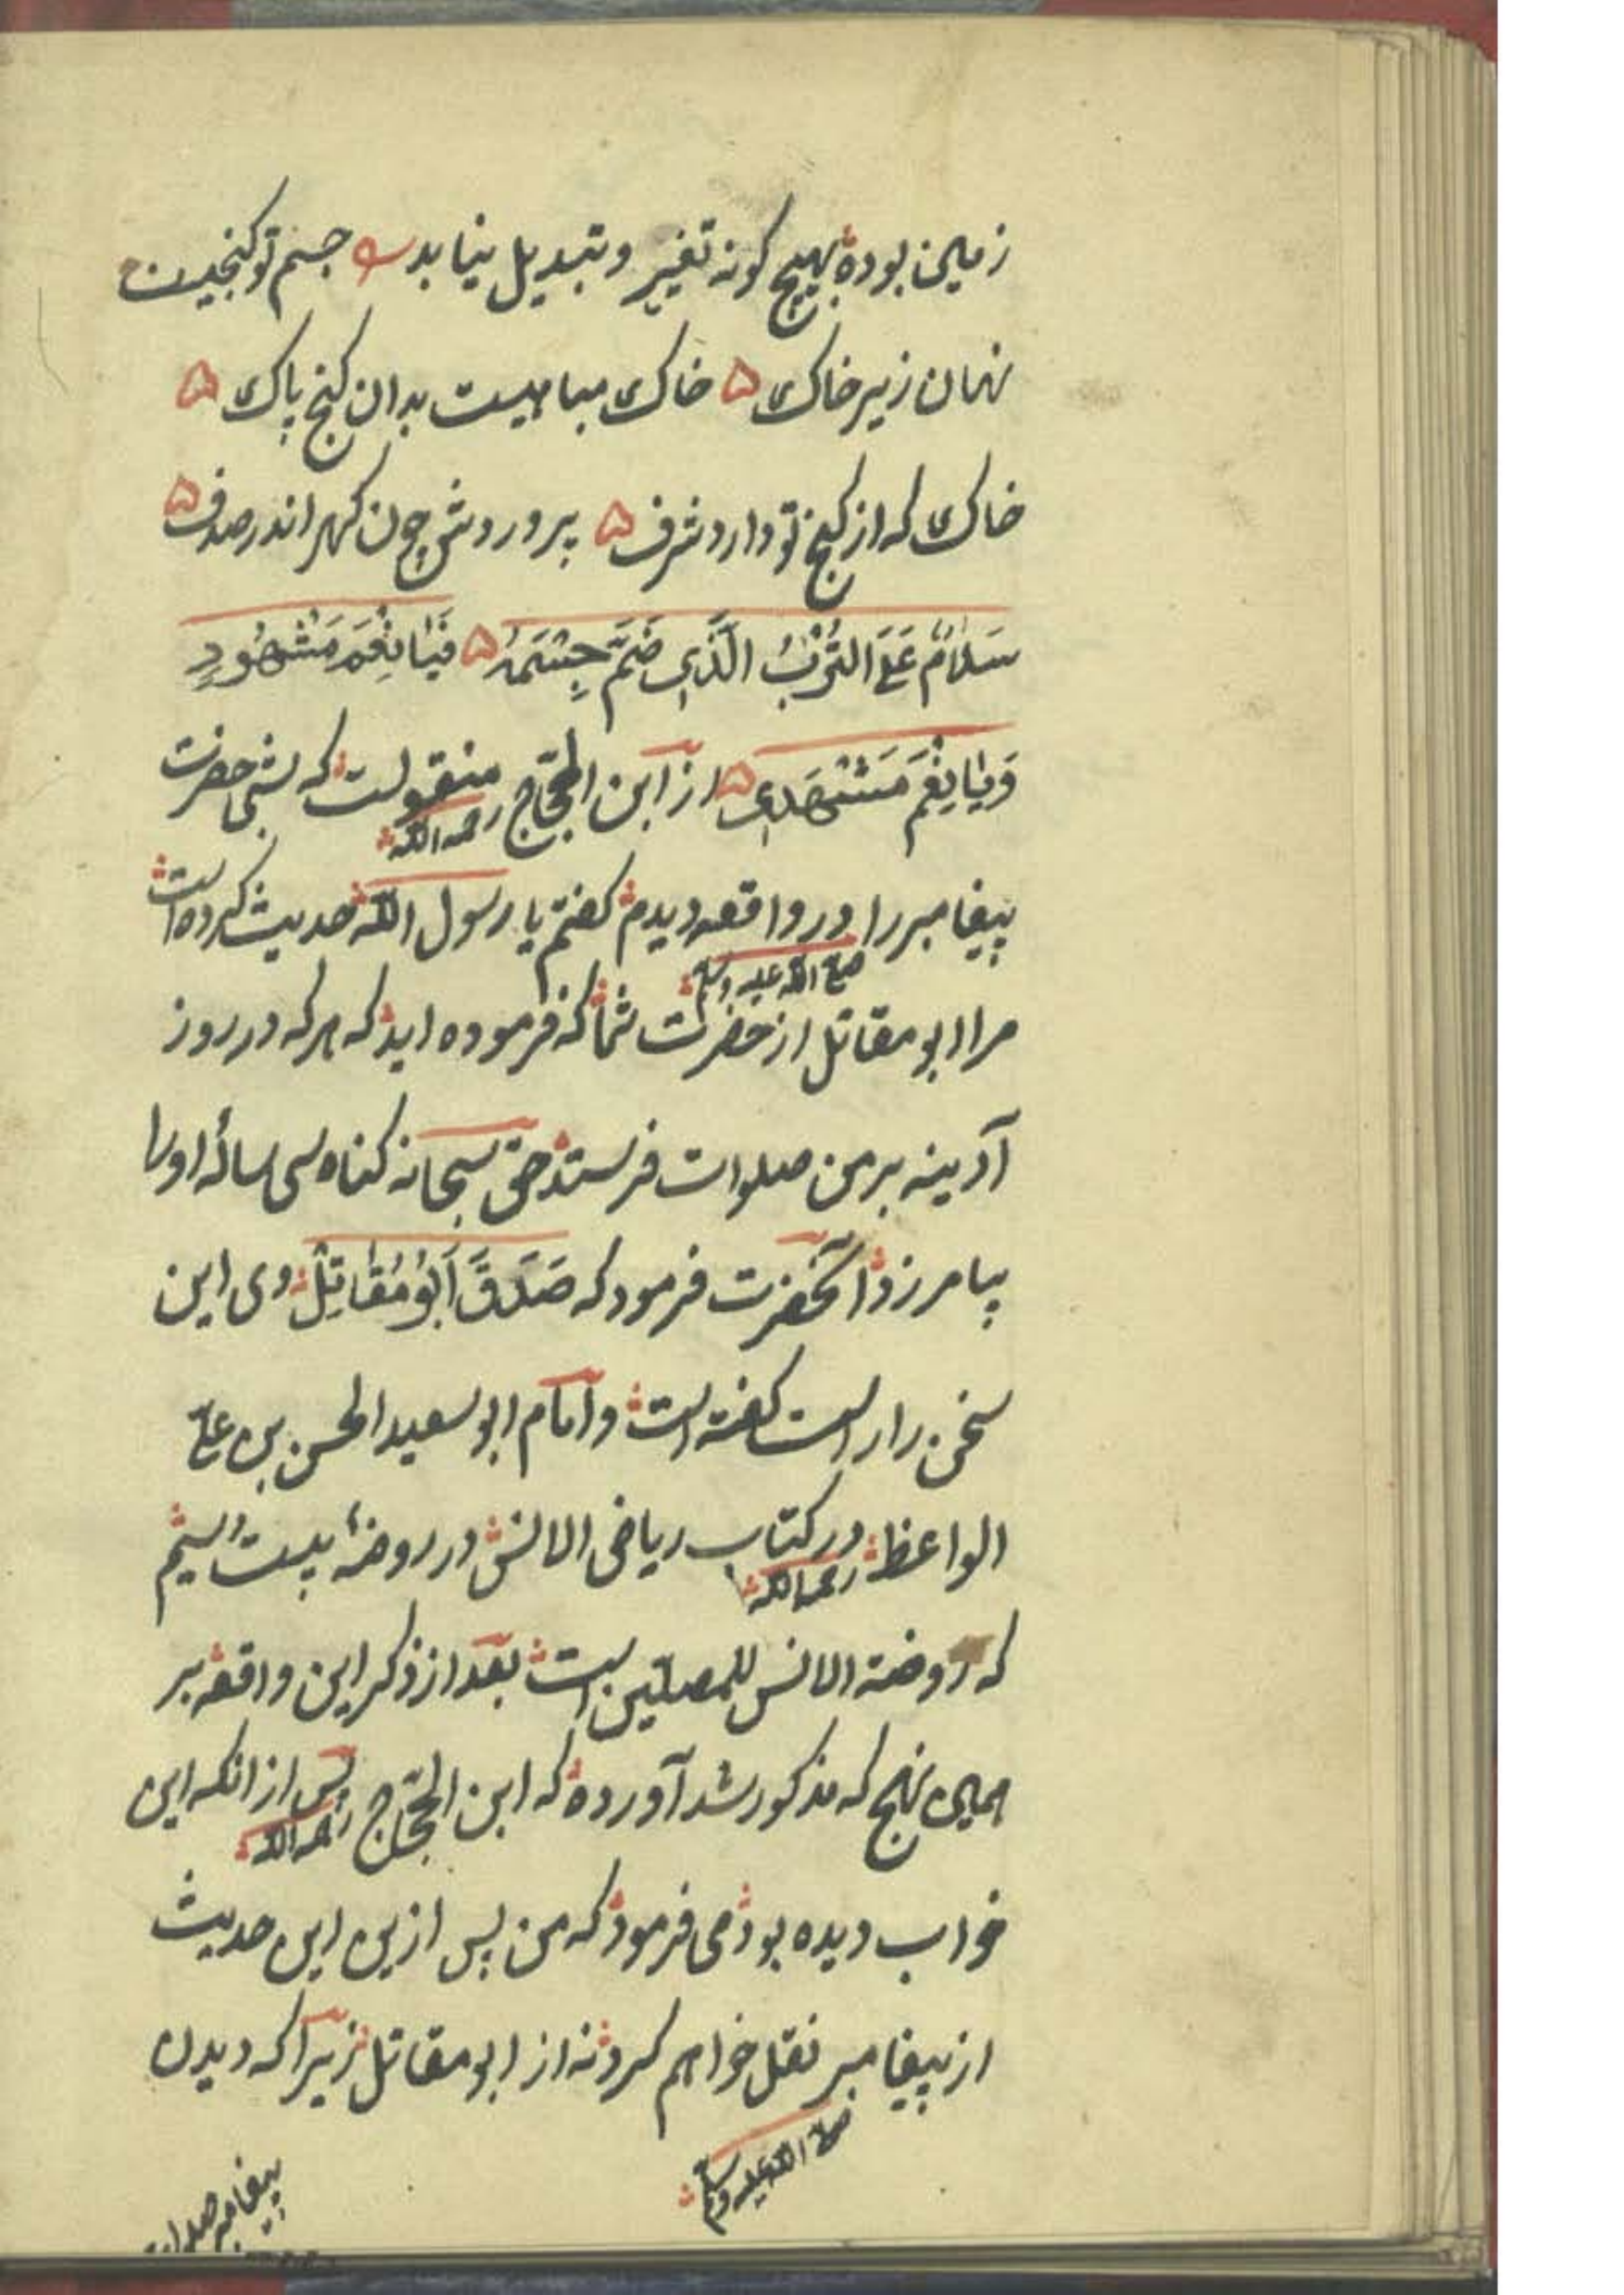 زمین بوده بهیچ کونه تغیر و تبدیل نیابد جسم تو کنجیست
نهان زیر خاک ۵ خاک مباهیست بدان کنج پاک ۵
خاک که از کنج تو دارد شرف ۵ پروردش چون کهر اندر صدف ۵
سَلَامٌ عَلَی التُّرْبِ الَّذِی ضَمَّ جِسْمَهُ ۵ فَیَا نِعْمَ مَشْهُودٍ
وَیَا نِعْمَ مَشْهَدِی ۵ از ابن الحجّاج رحمه الله منقولست که شبی حضرت
پیغامبر را صلی الله علیه وسلم در واقعه دیدم کفتم یا رسول الله حدیث کرده است
مرا ابو مقاتل از حضرت شما که فرموده اید که هر که در روز
آدینه بر من صلوات فرستد حق سبحانه کناه سی ساله او را
بیامرزد آنحضرت فرمود که صَدَقَ اَبُو مُقَاتِلْ وی این
سخن را راست کفته است و امام ابو سعید الحسن بن علی
الواعظ رحمه الله در کتاب ریاض الانس در روضهٔ بیست و سیم
که روضة الانس للمصلین است بعد از ذکر این واقعه بر
همین نهج که مذکور شد آورده که ابن الحجّاج رحمه الله پس از انکه این
خواب دیده بود می فرمود که من پس ازین این حدیث
از پیغامبر نقل خواهم کرد نه از ابو مقاتل زیرا که دیدن
صلی الله علیه وسلم
پیغامبر